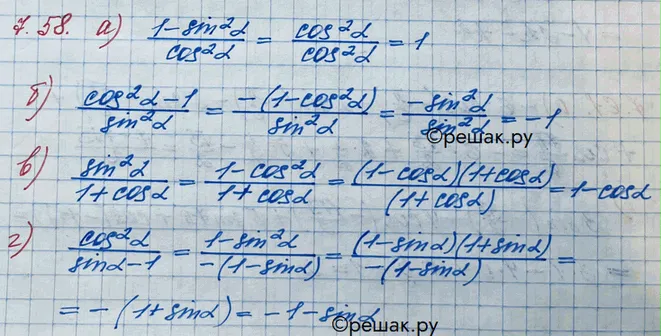 7.58. а) (1-sin²α)/(cos²α) = (cos²α)/(cos²α) = 1
©решак.ру
б) (cos²α-1)/(sin²α) = (-(1-cos²α))/(sin²α) = (-sin²α)/(sin²α) = -1
©решак.ру
в) (sin²α)/(1+cosα) = (1-cos²α)/(1+cosα) = ((1-cosα)(1+cosα))/((1+cosα)) = 1-cosα
г) (cos²α)/(sinα-1) = (1-sin²α)/(-(1-sinα)) = ((1-sinα)(1+sinα))/(-(1-sinα)) =
= -(1+sinα) = -1-sinα
©решак.ру